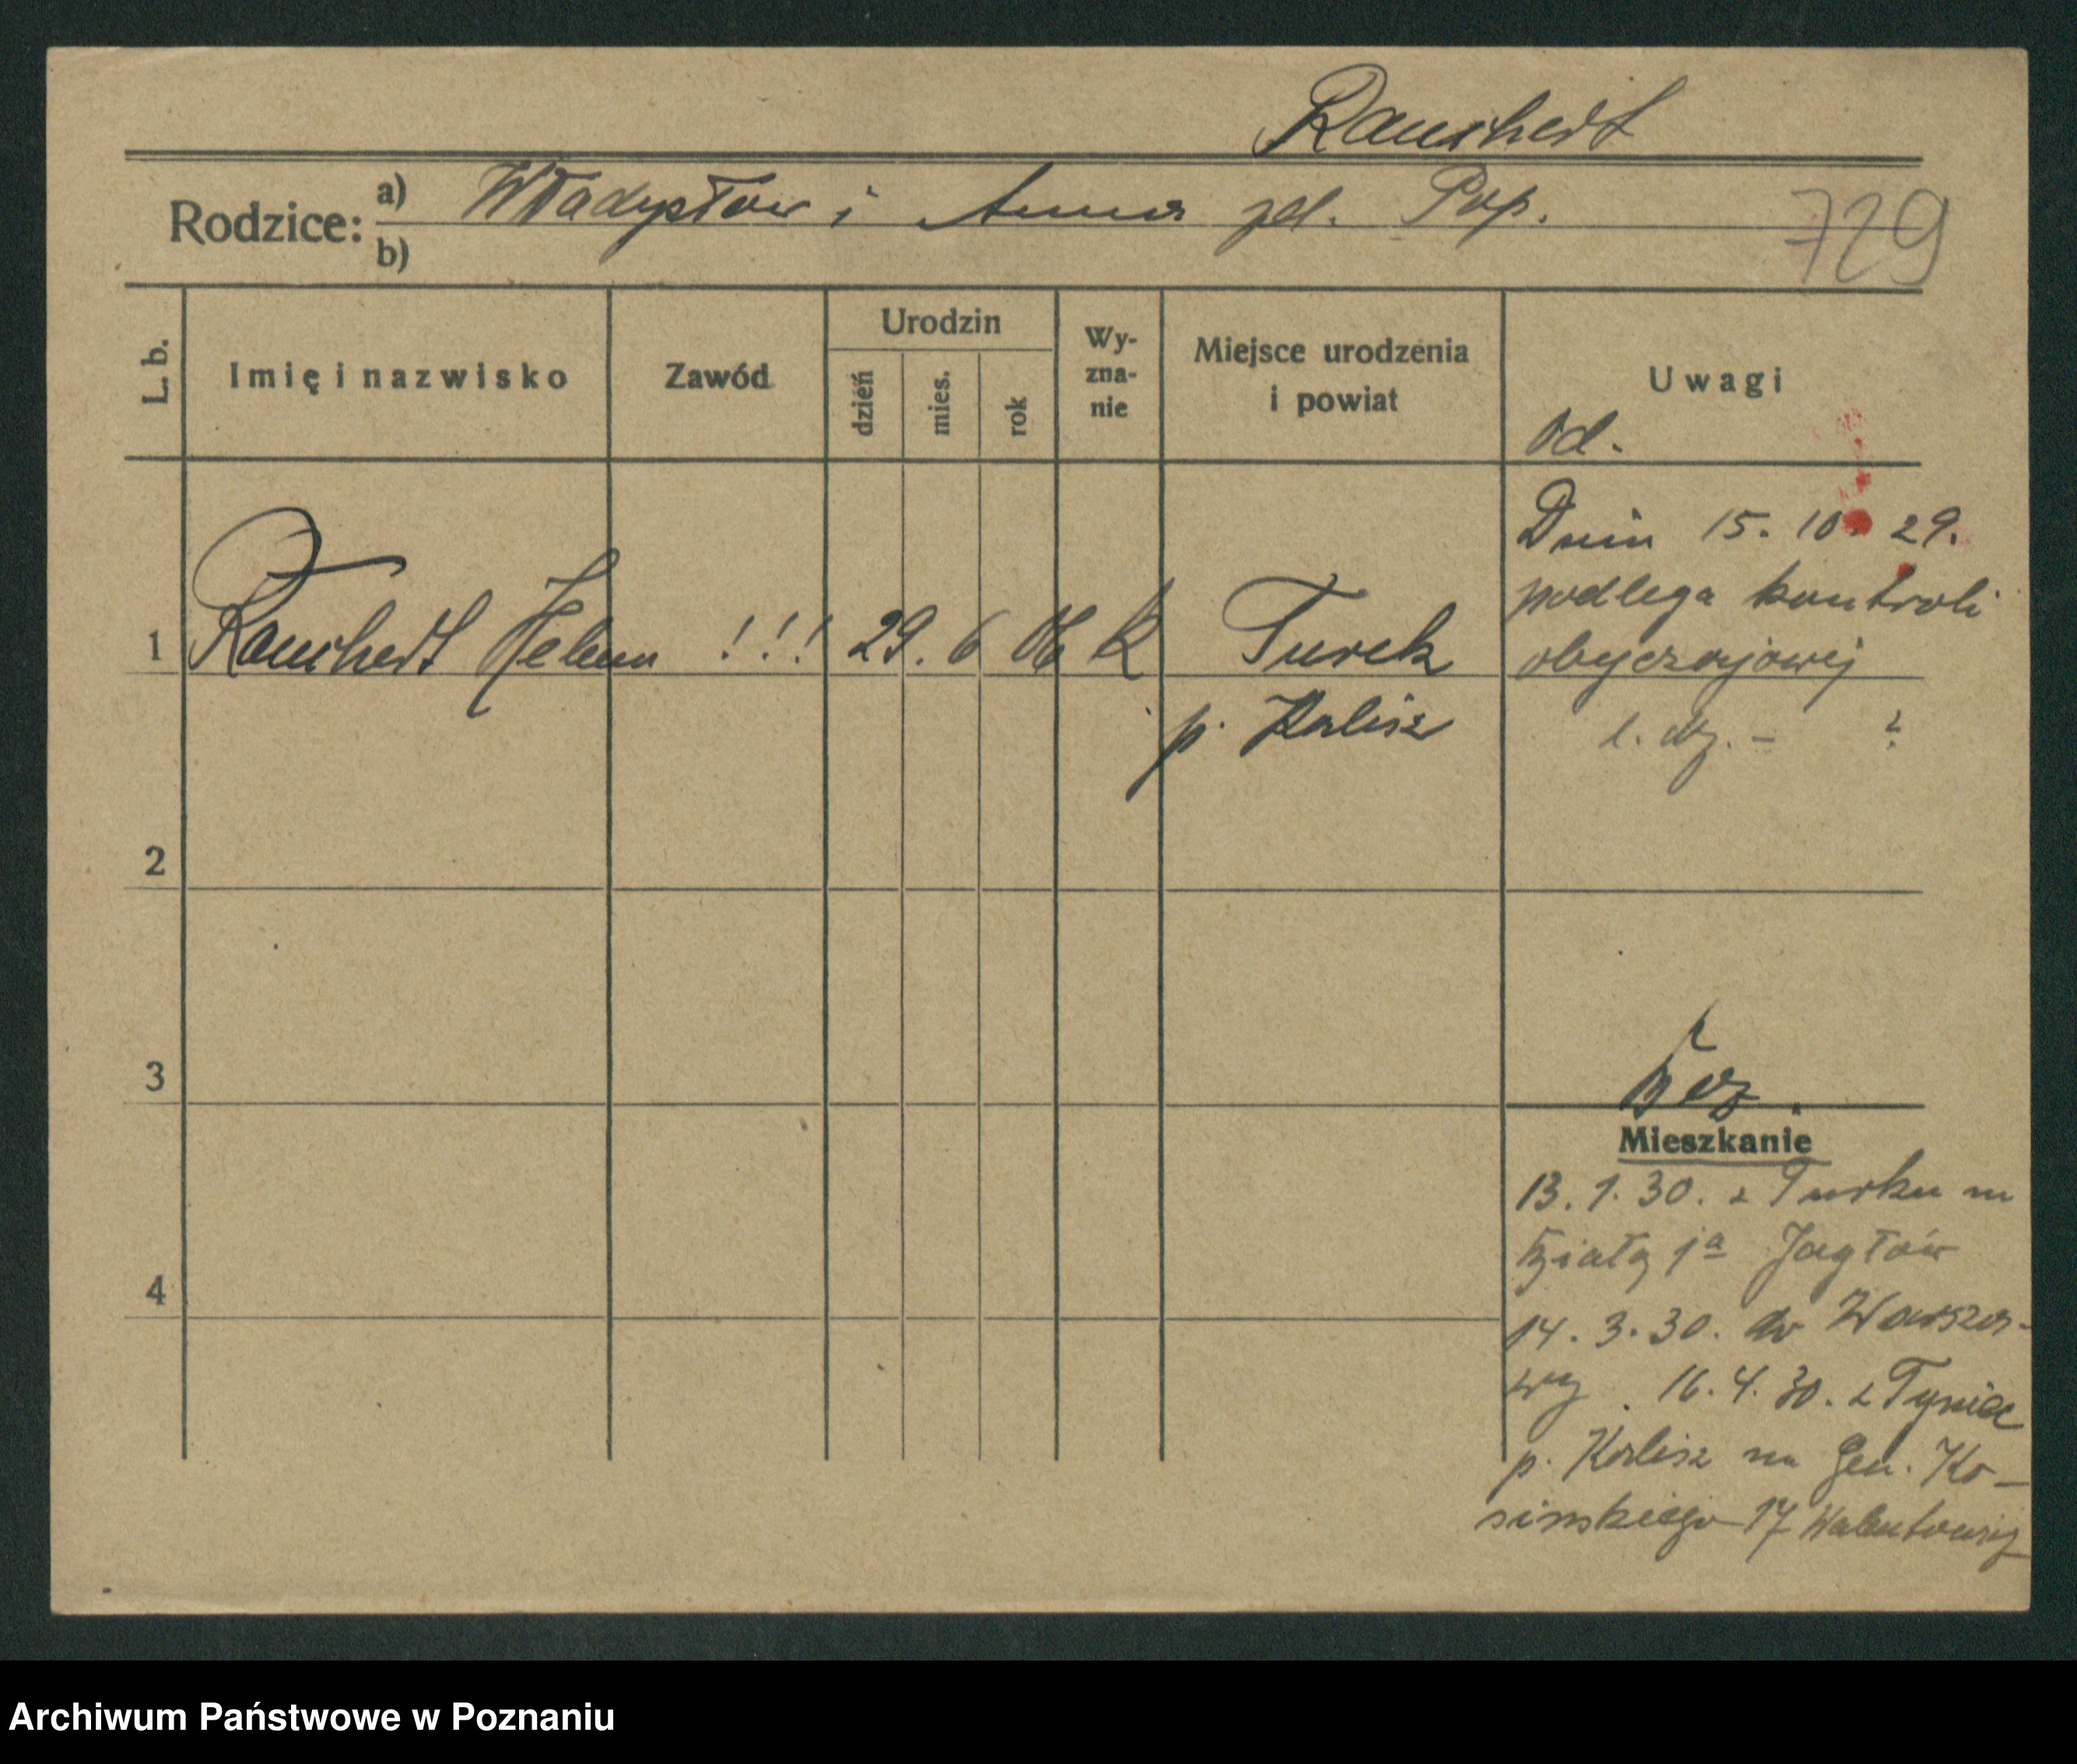 Rauchert
Rodzice: a) Władysław i Anna zd. Pop.
b)
729
L. b.
Imię i nazwisko
Zawód
Urodzin
dzień
mies.
rok
Wy-
zna-
nie
Miejsce urodzenia
i powiat
Uwagi
od.
1 Rauchert Helena !!! 29. 6 06 K Turek
p. Kalisz
Dnia 15. 10. 29.
podlega kontroli
obyczajowej
l. dz. - ?
2
3
4
Mieszkanie
13. 1. 30. z Turku na
Białą 1a Jagłów
14. 3. 30. do Warsza-
wy. 16. 4. 30. z Tyniec
p. Kalisz na Gen. Ko-
sinskiego 17
Archiwum Państwowe w Poznaniu